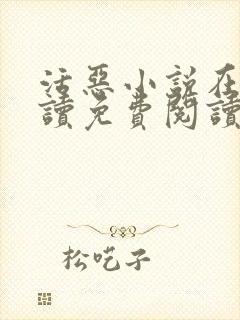 活惡小說在
讀免費閱讀
松吃子